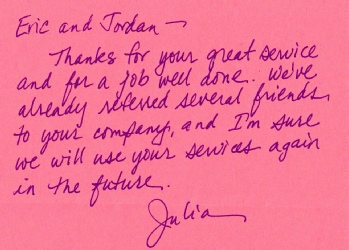 Eric and Jordan —
Thanks for your great service
and for a job well done. We've
already referred several friends
to your company, and I'm sure
we will use your services again
in the future.
Julia